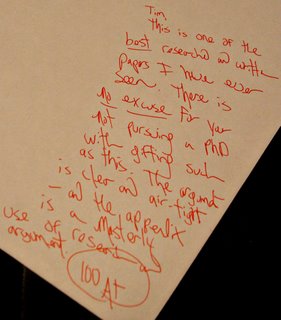 Tim,
This is one of the
best researched and written
papers I have ever
seen. There is
no excuse for your
not pursuing a PhD
with gifting such
as this. The argument
is clear and air-tight
– and the appendix
is a masterly
use of research and
argument.
100
A+